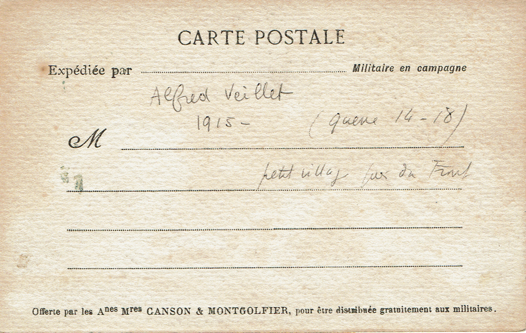 CARTE POSTALE
Expédiée par Militaire en campagne
Alfred Veillet
1915 - (guerre 14-18)
M
petit village près du Front
Offerte par les Anes Mres CANSON & MONTGOLFIER, pour être distribuée gratuitement aux militaires.